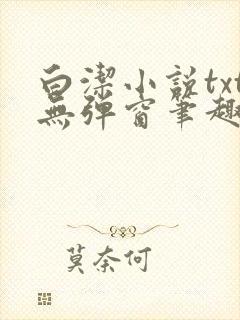 白潔小説txt
無彈窗筆趣
莫奈何